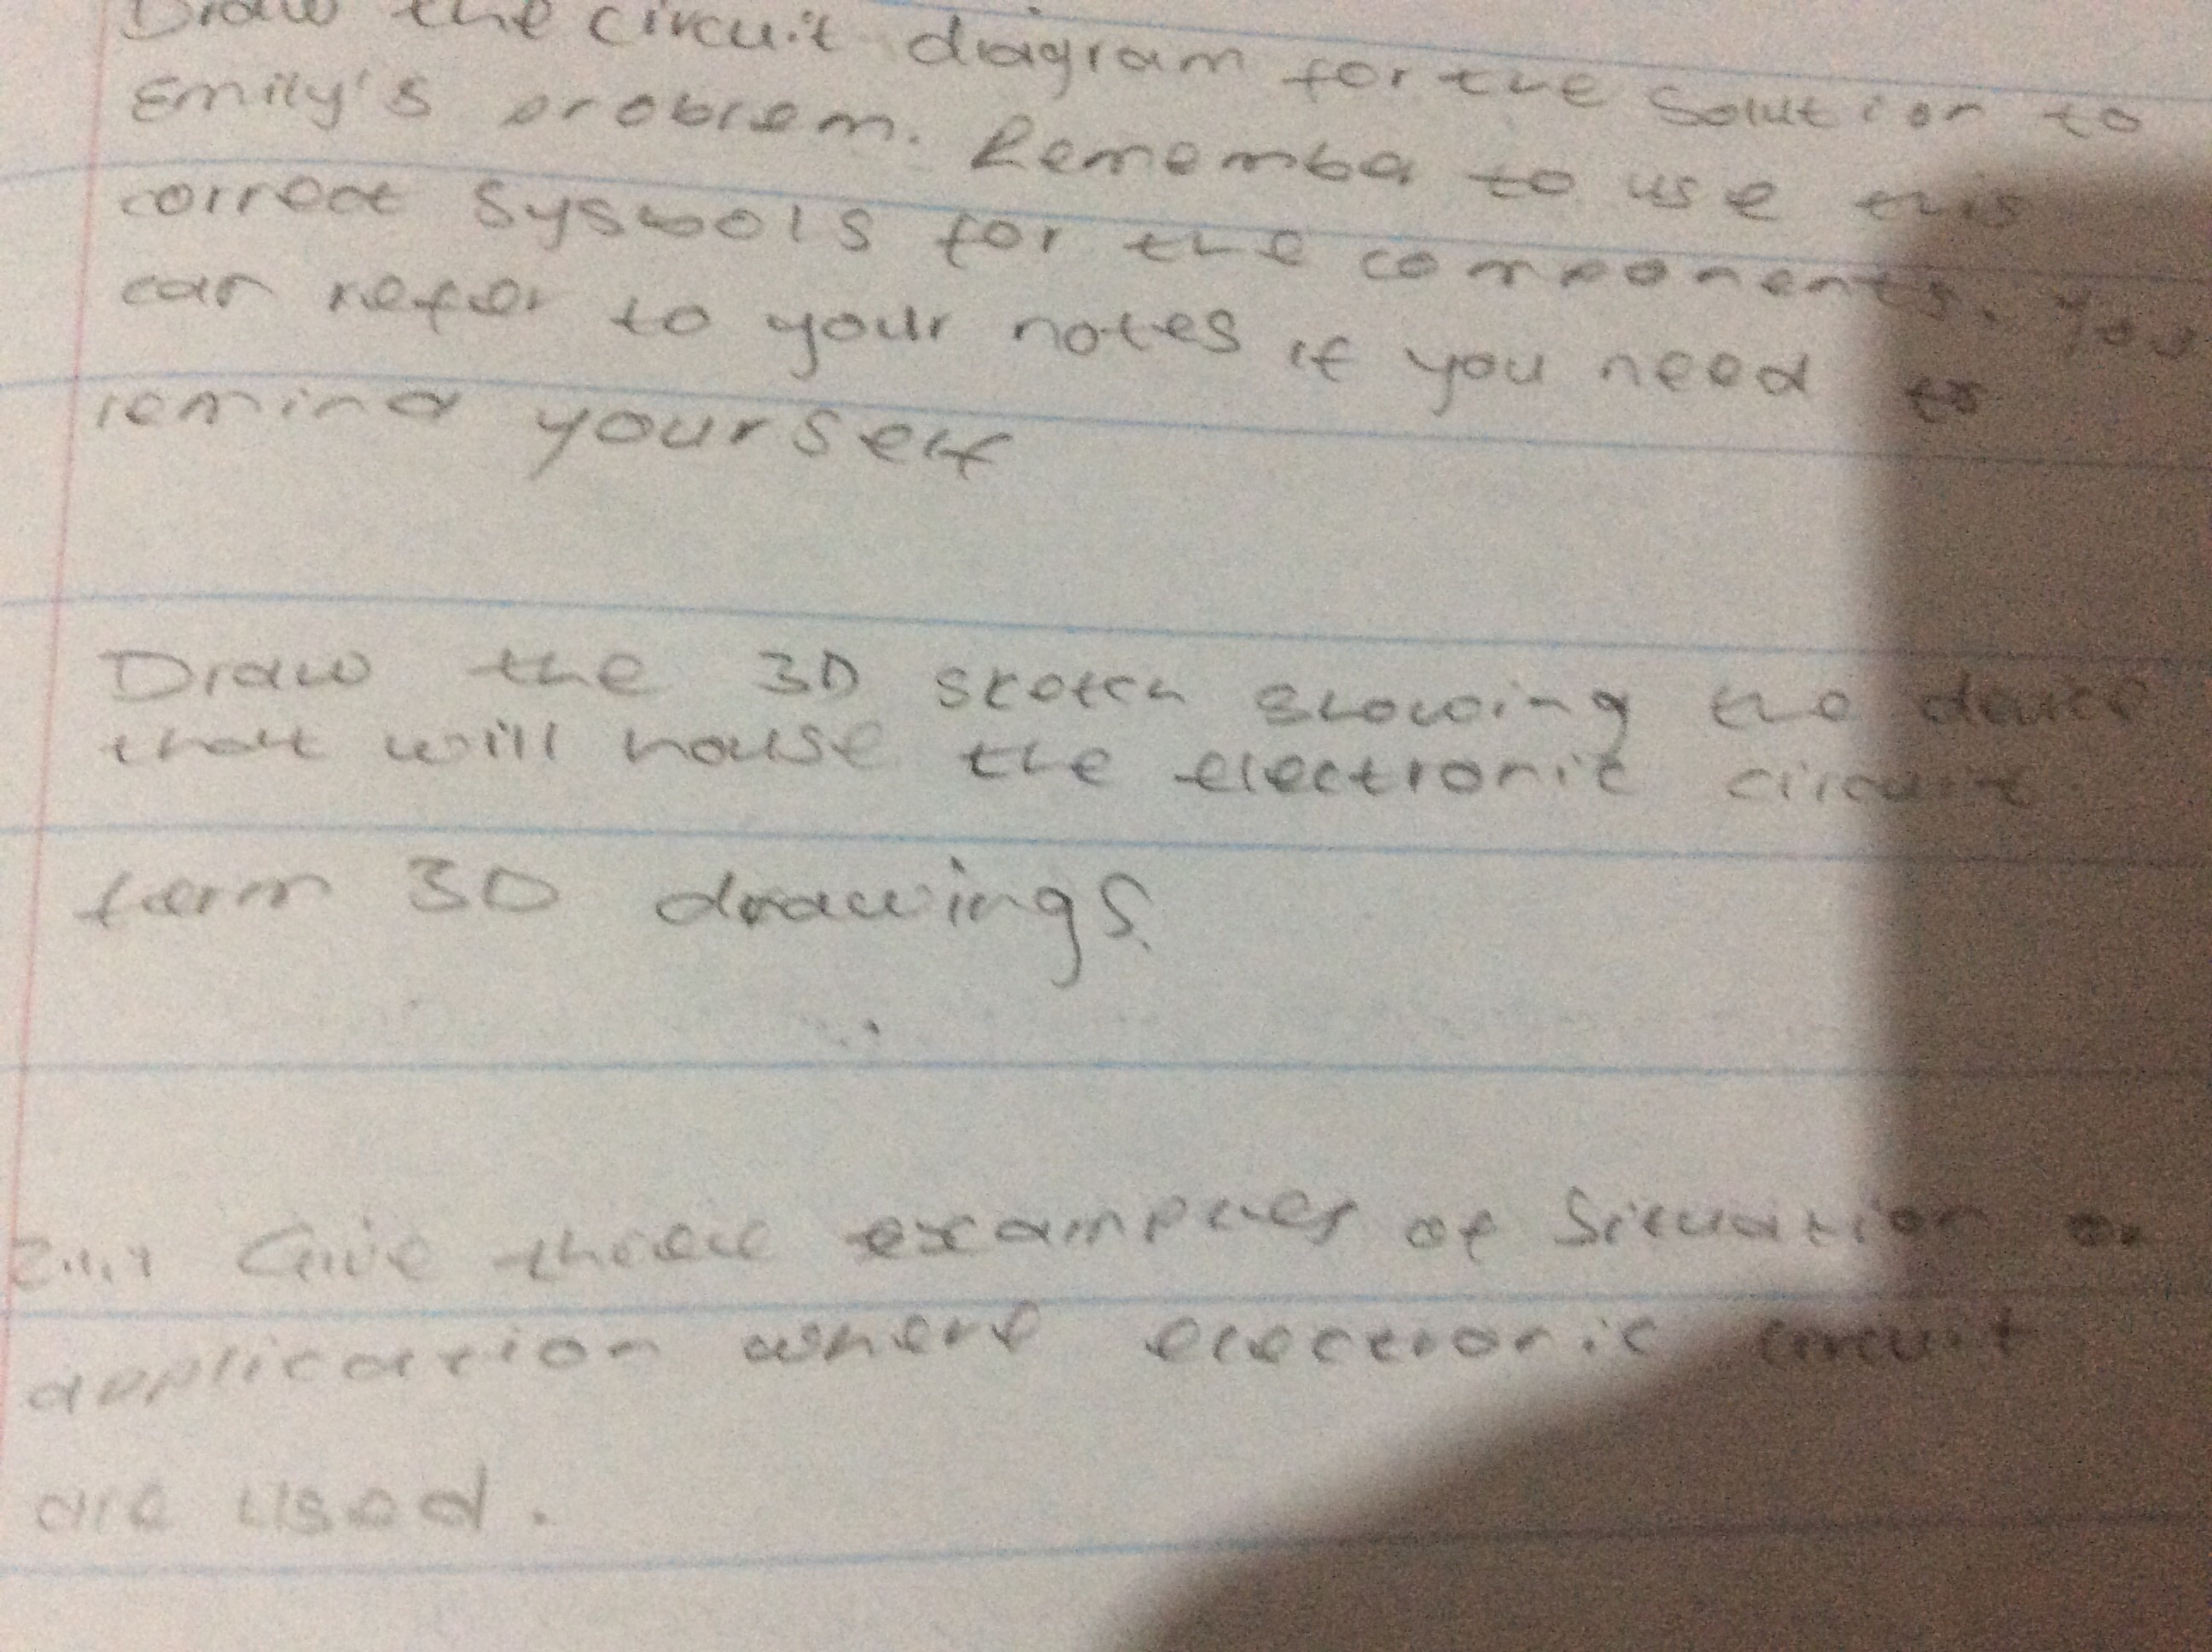 Draw the circuit diagram for the solution to
Emily's problem. Remember to use this
correct sysbols for the components. You
can refer to your notes if you need to
remind yourself
Draw the 3D sketch showing the device
that will house the electronic circuit
term 3D drawings.
Give three examples of situation or
application where electronic circuit
are used.